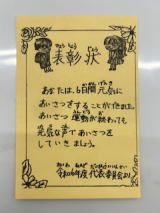 表彰状
あなたは、6日間元気に
あいさつをすることができました。
あいさつ運動が終わっても
元気な声であいさつを
していきましょう。
令和6年度 代表委員会より